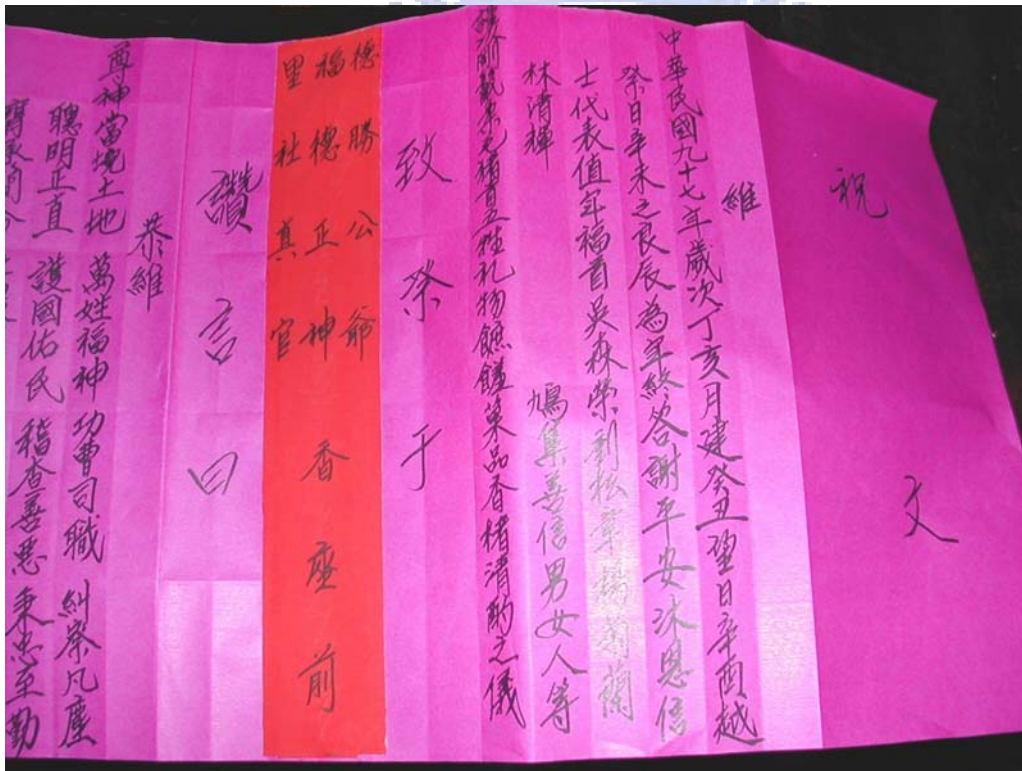 祝文
維
中華民國九十七年歲次丁亥月建癸丑望日辛酉越
祭日辛未之良辰為年終答謝平安沐恩信
士代表值年福首吳森榮劉松章楊菊蘭
林清輝 鳩集善信男女人等
謹以剛鬣柔毛補首五牲礼物餚饈菓品香楮清酌之儀
致祭于
德勝公爺
福德正神 香座前
里社真官
讚言曰
恭維
尊神當境土地 萬姓福神 功曹司職 糾察凡塵
聰明正直 護國佑民 稽查善惡 秉忠至勤